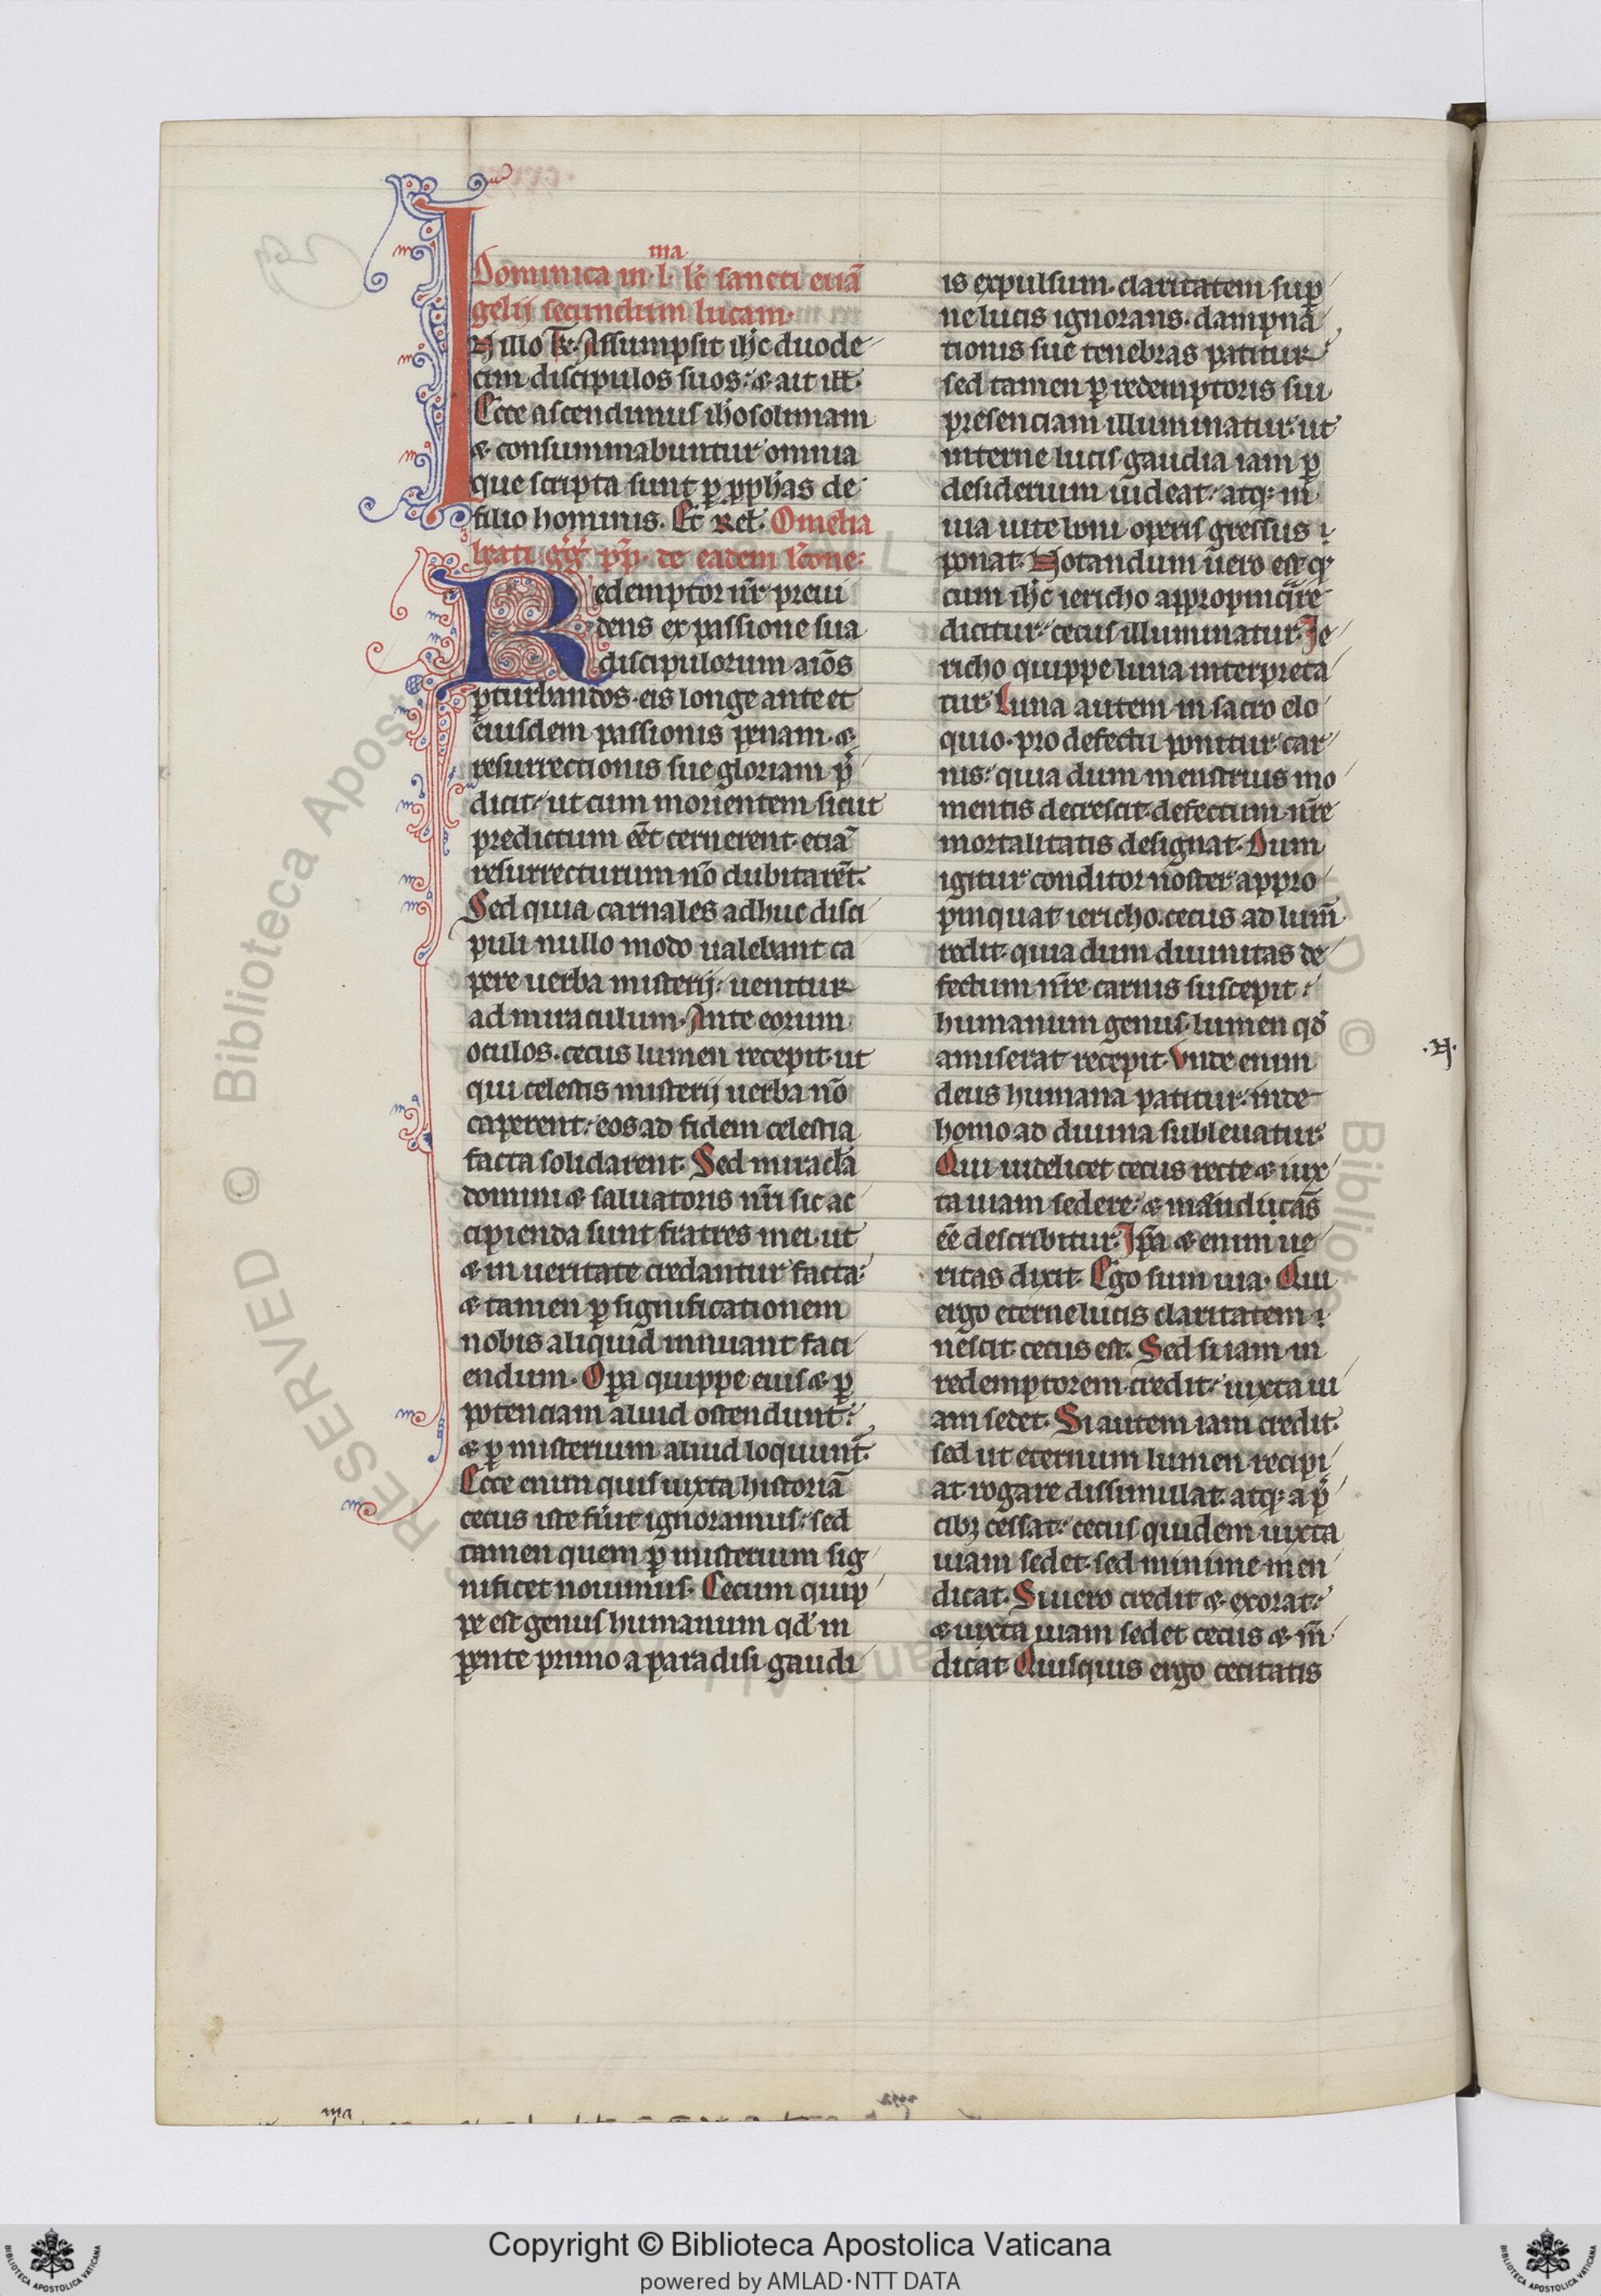 Dominica in .l.ma lc̄ sancti euā
gelij secundum lucam.
IN illo tp̄r. Assumpsit ih̄c duode
cim discipulos suos: & ait ill̄.
Ecce ascendimus ih̄osolimam
& consummabuntur omnia
que scripta sunt ꝑ ꝓph̄as de
filio hominis. Et rel̄. Omelia
beati gͥgͥ pp̄. de eadem lc̄one:
Redemptor nr̄ preui
dens ex passione sua
discipulorum aīos
ꝑturbandos. eis longe ante et
eiusdem passionis penam. &
resurrectionis sue gloriam p̄
dicit: ut cum morientem sicut
predictum eēt cernerent. etiā
resurrecturum nō dubitarēt.
Sed quia carnales adhuc disci
puli nullo modo ualebant ca
pere uerba misterij: uenitur
ad miraculum. Ante eorum
oculos. cecus lumen recepit. ut
qui celestis misterij uerba nō
caperent: eos ad fidem celestia
facta solidarent. Sed miracl̄a
domini & saluatoris nr̄i sic ac
cipienda sunt fratres mei. ut
& in ueritate credantur facta:
& tamen ꝑ significationem
nobis aliquid innuant faci
endum. Oꝑa quippe eius & ꝑ
potenciam aliud ostendunt:
& ꝑ misterium aliud loquunt̄.
Ecce enim quis iuxta historiā
cecus iste fūit ignoramus: sed
tamen quem ꝑ misterium sig
nificet nouimus. Cecum quip
pe est genus humanum qd̄ in
ꝑente primo a paradisi gaudi
is expulsum. claritatem suꝑ
ne lucis ignorans. dampnā
tionis sue tenebras patitur
sed tamen ꝑ redemptoris sui
presenciam illuminatur. ut
interne lucis gaudia iam ꝑ
desiderium uideat. atq; in
uia uite boni operis gressus
ponat. Notandum uero est q̄
cum ih̄c iericho appropinqͣre
dicitur: cecus illuminatur. Je
richo quippe luna interpreta
tur. Luna autem in sacro elo
quio. pro defectu ponitur car
nis: quia dum menstruis mo
mentis decrescit. defectum nr̄e
mortalitatis designat. Dum
igitur conditor noster appro
pinquat iericho. cecus ad lum̄
redit. quia dum diuinitas de
fectum nr̄e carnis suscepit:
humanum genus. lumen qd̄
amiserat recepit. Vnde enim
deus humana patitur: inde
homo ad diuina subleuatur.
Qui uidelicet cecus recte & iux
ta uiam sedere: & mandicās
eē describitur. Ip̄a & enim ue
ritas dixit. Ego sum uia. Qui
ergo eterne lucis claritatem
nescit. cecus est. Sed si iam in
redemptorem credit: iuxta ui
am sedet. Si autem iam credit.
sed ut eternum lumen recipi
at rogare dissimulat. atq; a p̄
cibꝫ cessat: cecus quidem iuxta
uiam sedet. sed minime men
dicat. Si uero credit & exorat:
& iuxta uiam sedet cecus & m̄
dicat. Quisquis ergo cecitatis
Copyright © Biblioteca Apostolica Vaticana
powered by AMLAD·NTT DATA